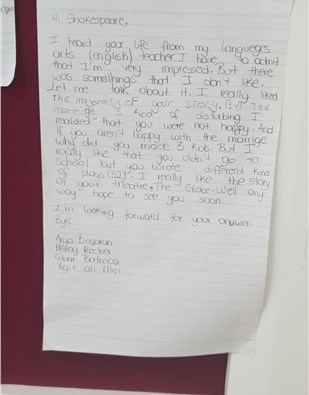 Hi Shakespeare,
I heard your life from my languages
arts (english) teacher I have to admit
that I'm very impressed. But there
was something that I don't like.
Let me talk about it. I really liked
The majority of your story. But The
marrige is kind of disturbing I
realised that you were not happy. And
if you aren't happy with the marrige
why did you made 3 kids. But I
really like that you didn't go to
school but you wrote different kind
of plays (37). I really like the story
of your theatre, The Globe. Well any
way hope to see you soon.
I'm looking forward for your answer.
Bye!
Arya Basaran